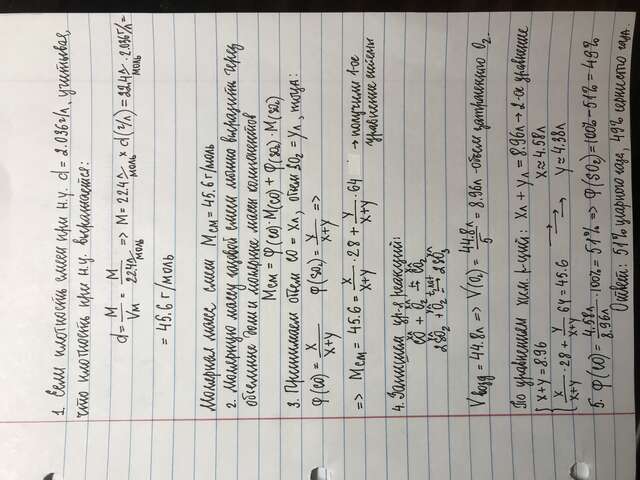 1. Если плотность смеси при н.у. d = 2.036 г/л, учитывая,
что плотность при н.у. выражается:
d = M/Vм = M/22.4 л/моль => M = 22.4 л/моль × d(г/л) = 22.4 л/моль · 2.036 г/л =
= 45.6 г/моль
Молярная масс смеси Mсм = 45.6 г/моль
2. Молярную массу газовой смеси можно выразить через
объемные доли и молярные массы компонентов
Mсм = φ(CO)·M(CO) + φ(SO₂)·M(SO₂)
3. Принимаем объем CO = xл, объем SO₂ = yл, тогда:
φ(CO) = x/x+y φ(SO₂) = y/x+y =>
=> Mсм = 45.6 = x/x+y · 28 + y/x+y · 64 → получили 1-ое
уравнение системы
4. Запишем ур-я реакций:
xл xл xл
CO + O₂ t→ CO₂
yл yл
2SO₂ + O₂ t, kat→ 2SO₃
Vвозд = 44.8л => V(O₂) = 44.8л/5 = 8.96л - объем затраченного O₂.
По уравнениям хим. р-ций: xл + yл = 8.96л → 2-ое уравнение
{ x+y = 8.96 x ≈ 4.58л
x/x+y · 28 + y/x+y 64 = 45.6 →→→ y ≈ 4.38л
5. φ(CO) = 4.58л/8.96л · 100% = 51% => φ(SO₂) = 100% - 51% = 49%
Ответ: 51% угарного газа, 49% сернистого газа.